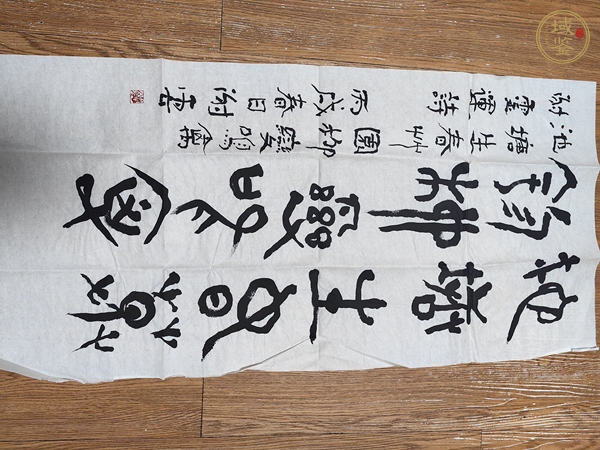 池塘生春草
園柳變鳴禽
池塘生春艸園柳變鳴禽
謝靈運詩丙戌春日謝雲
域鉴